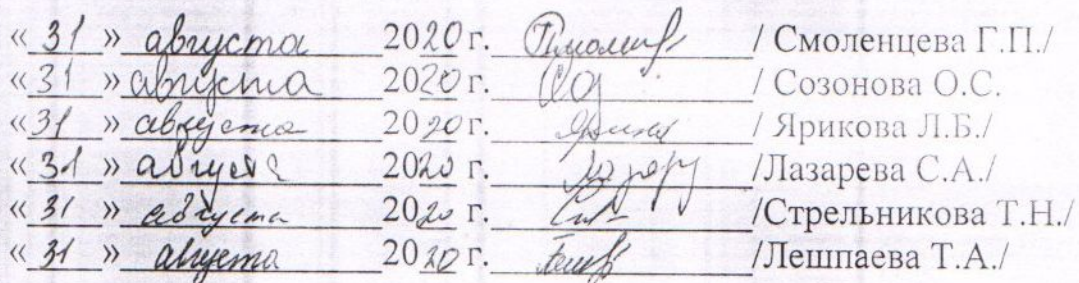 « 31 » августа 2020 г. / Смоленцева Г.П./
« 31 » августа 2020 г. / Созонова О.С.
« 31 » августа 2020 г. / Ярикова Л.Б./
« 31 » августа 2020 г. /Лазарева С.А./
« 31 » августа 2020 г. /Стрельникова Т.Н./
« 31 » августа 2020 г. /Лешпаева Т.А./